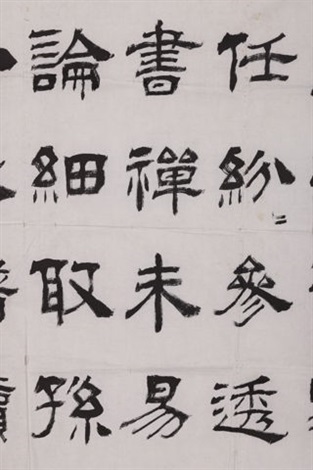 任紛〻參透
書禪未易
論細取孫